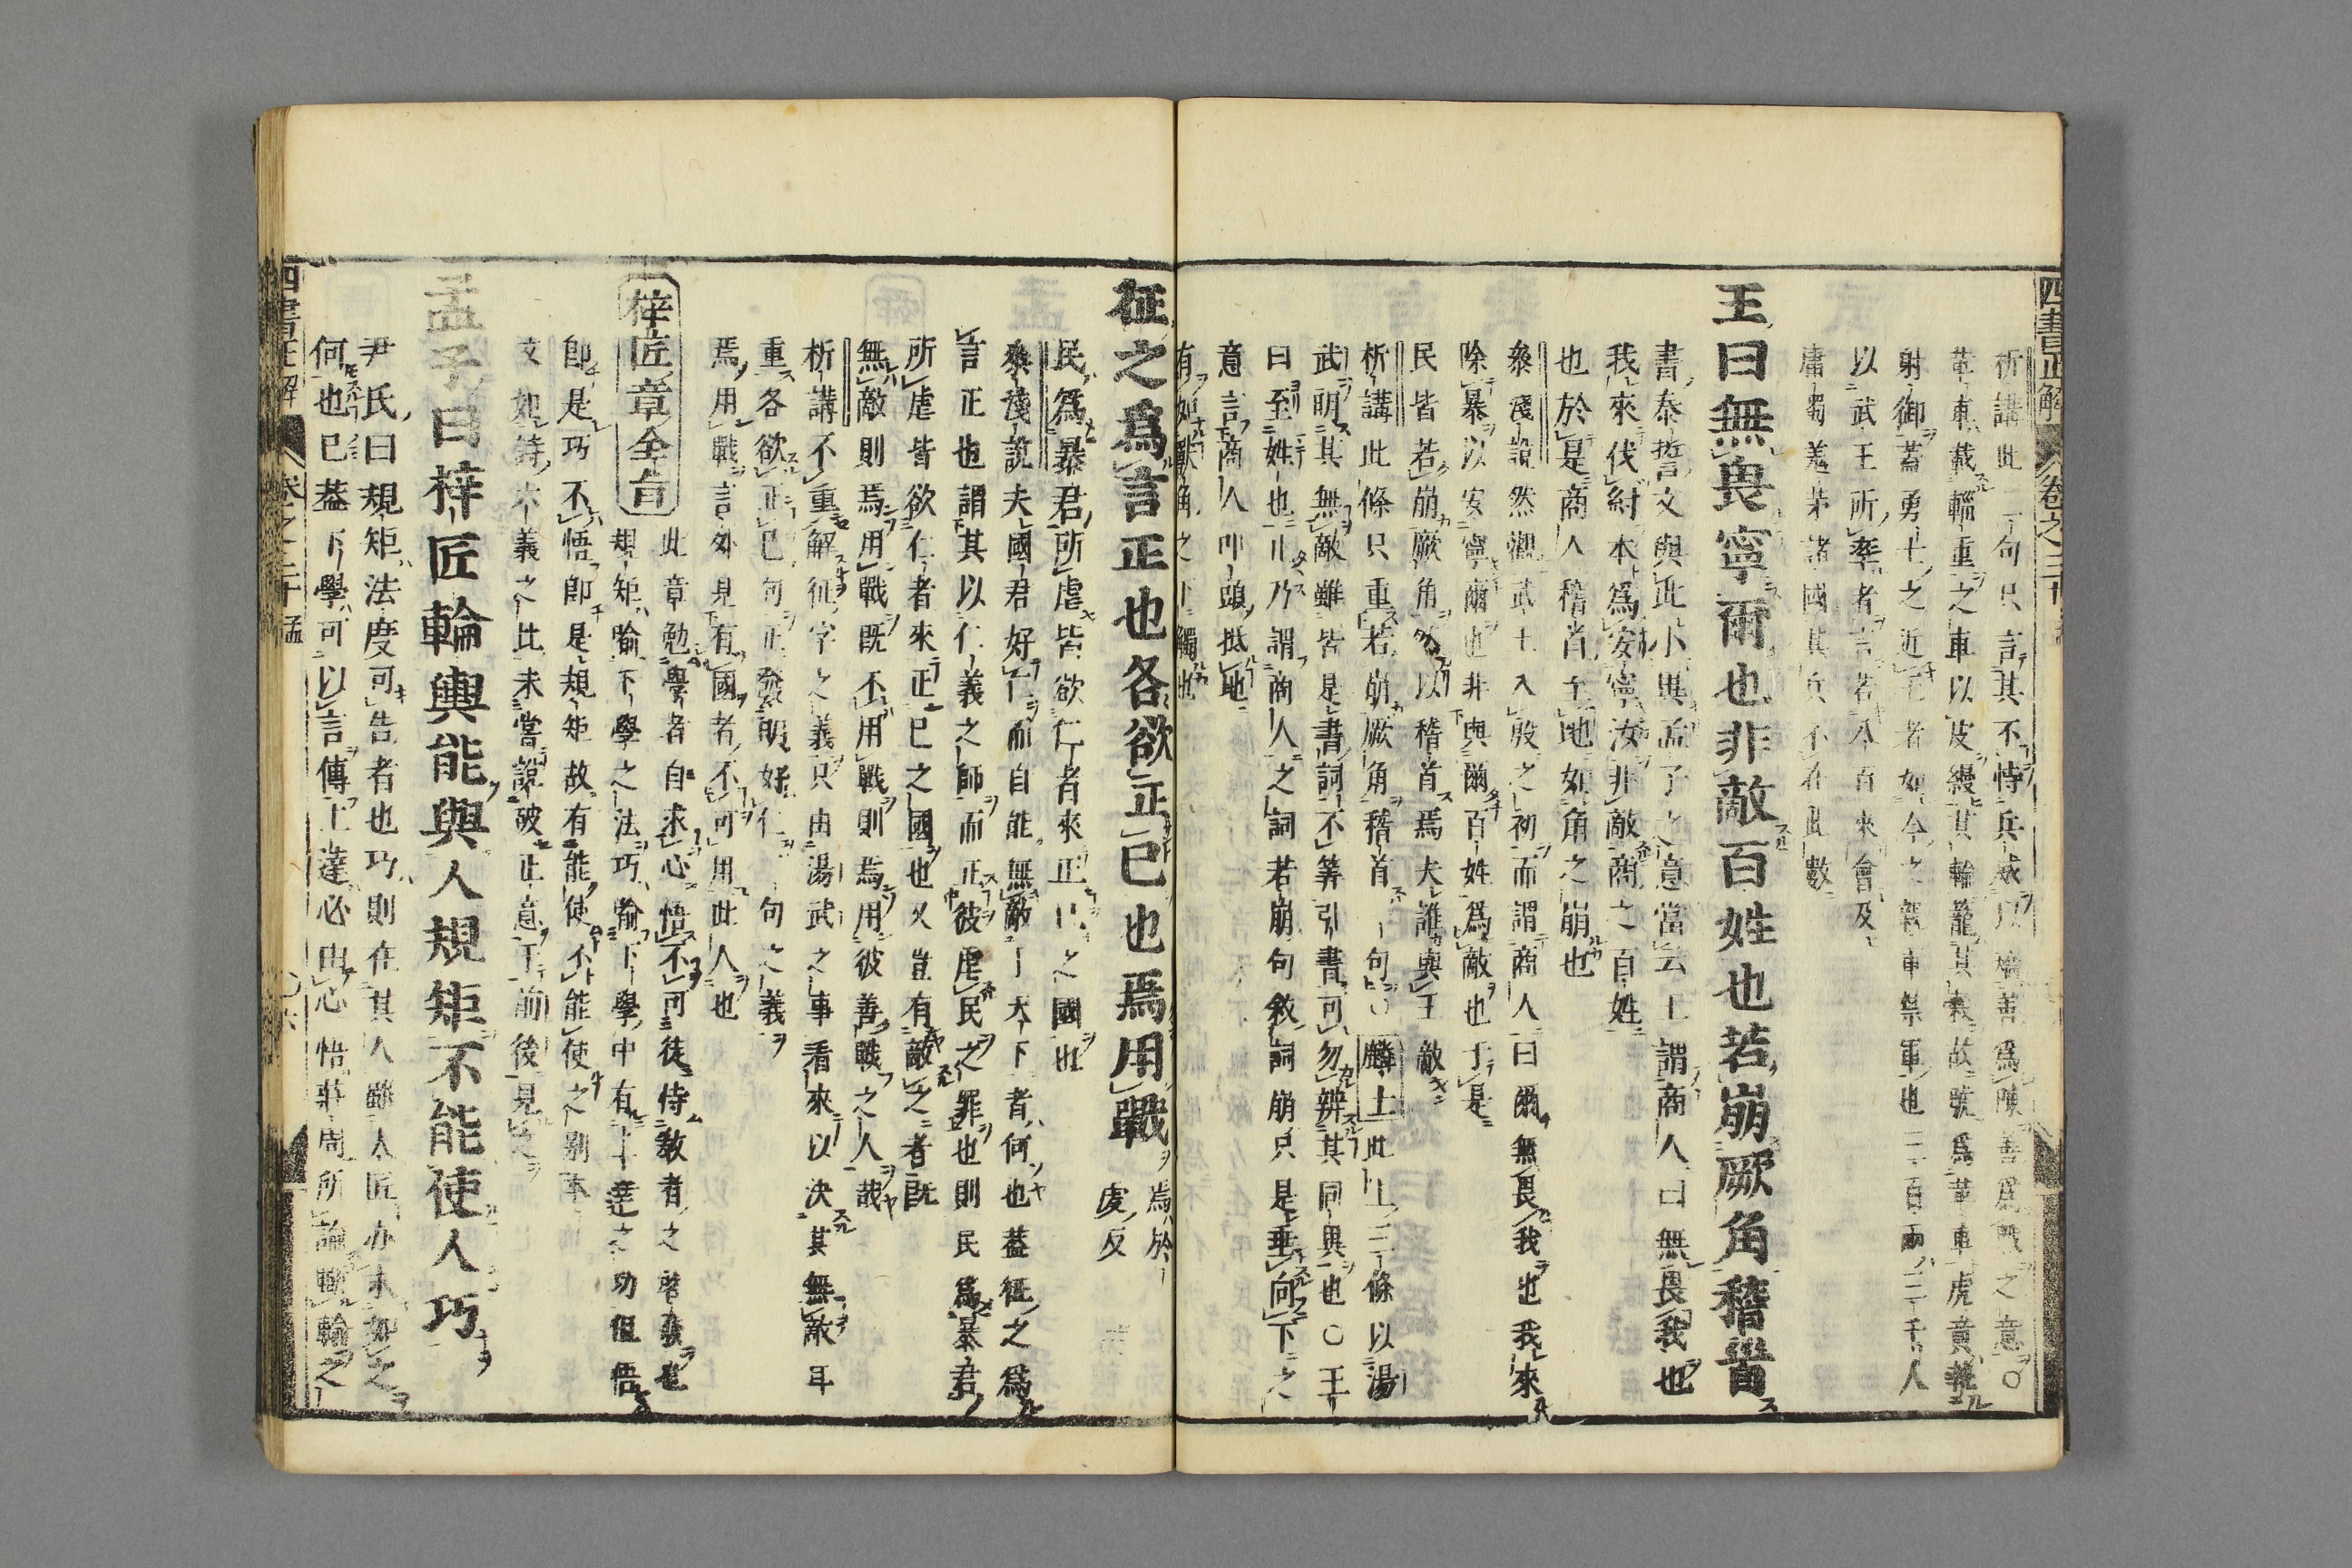 四書正解 卷之三十
析講此二句只言其不恃兵威以
善爲陳善爲戰之意〇
革車載輜重之車以皮縵其輪籠其
故號爲革車虎賁
射御葢勇士之近王者如今之
軍也三百兩三千人
以武王所率者言若八百來會及
庸蜀羗茅諸國其兵不在此數
王曰無畏寧爾也非敵百姓也若崩厥角稽首
書泰誓文與此小異孟子之意當云王謂商人曰無畏我也
我來伐紂本爲安寧汝非敵商之百姓
也於是商人稽首至地如角之崩也
叅淺說然觀武王入殷之初而謂商人曰爾無畏我也我來
除暴以安寧爾也非與爾百姓爲敵也于是
民皆若崩厥角以稽首焉夫誰與王敵
析講此條只重若崩厥角稽首一句〇麟士此上三條以湯
武明其無敵雖皆是書詞不等引書可勿辨其同異也〇王
曰至姓也止乃謂商人之詞若崩句敘詞崩只是垂向下之
意言商人叩頭抵地
有如獸角之下觸也
征之爲言正也各欲正已也焉用戰
焉於
虔反
民爲暴君所虐皆欲仁者來正已之國也
叅淺說夫國君好仁而自能無敵于天下者何也葢征之爲
言正也謂其以仁義之師而正彼虐民之罪也則民爲暴君
所虐皆欲仁者來正已之國也又豈有敵之者旣
無敵則焉用戰旣不用戰則焉用彼善戰之人哉
析講不重解征字之義只由湯武之事看來以決其無敵耳
重各欲正已句正發明好仁 句之義
焉用戰言外見有國者不可用此人也
梓匠章全旨
此章勉學者自求心悟不可徒侍敎者之啓發也
規矩喻下學之法巧喻下學中有上達之功但悟
卽是巧不悟卽是規矩故有能使不能使之別本
文如詩 義之比未嘗說破正意于前後見之
孟子曰梓匠輪輿能與人規矩不能使人巧
尹氏曰規矩法度可告者也巧則在其人雖大匠亦末如之
何也已葢下學可以言傳上達必由心悟莊周所論斵輪之
四書正解 卷之三十 孟